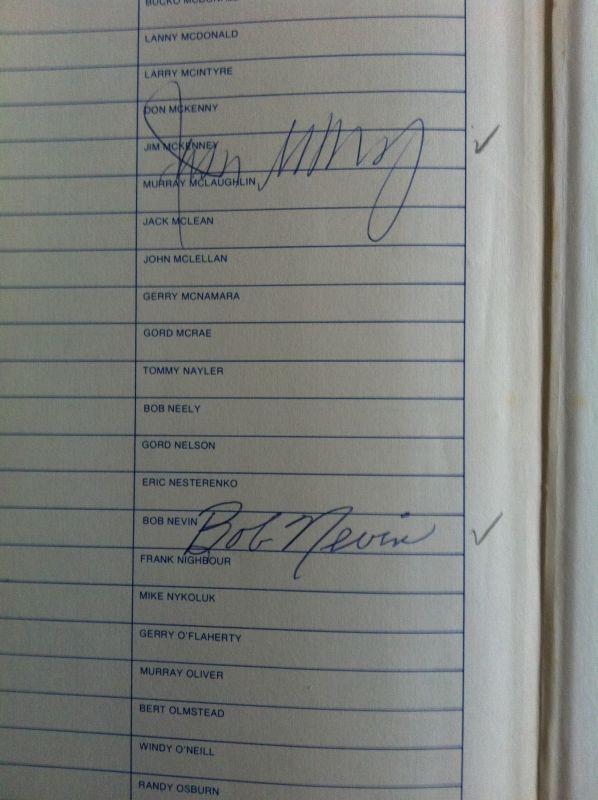 BUCKO MCDONALD
LANNY MCDONALD
LARRY MCINTYRE
DON MCKENNY
JIM MCKENNEY
MURRAY MCLAUGHLIN
JACK MCLEAN
JOHN MCLELLAN
GERRY MCNAMARA
GORD MCRAE
TOMMY NAYLER
BOB NEELY
GORD NELSON
ERIC NESTERENKO
BOB NEVIN Bob Nevin
FRANK NIGHBOUR
MIKE NYKOLUK
GERRY O'FLAHERTY
MURRAY OLIVER
BERT OLMSTEAD
WINDY O'NEILL
RANDY OSBURN